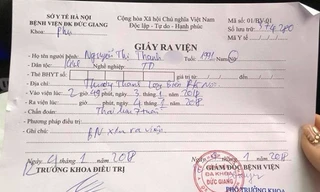 SỞ Y TẾ HÀ NỘI
BỆNH VIỆN ĐK ĐỨC GIANG
Khoa: Phụ
Cộng Hòa Xã hội Chủ nghĩa Việt Nam
Độc lập - Tự do - Hạnh phúc
Mã số: 01/BV-01
Số lưu trữ:
GIẤY RA VIỆN
Họ tên người bệnh: Nguyễn Thị Thanh Tuổi:
Dân tộc: Kinh Nghề nghiệp: TD
Thẻ BHYT số: giá trị từ đến
Địa chỉ: Thượng Thanh Long Biên Hà Nội
Vào viện lúc: giờ phút, ngày 3 tháng 1 năm 2018
Ra viện lúc: giờ phút, ngày 4 tháng 1 năm 2018
Chẩn đoán: Thai lưu 7 tuần
Phương pháp điều trị:
Ghi chú: BN xin ra viện
Ngày 4 tháng 1 năm 2018
TRƯỞNG KHOA ĐIỀU TRỊ
1 năm 2018
GIÁM ĐỐC BỆNH VIỆN
ĐA KHOA
ĐỨC GIANG
PHÓ TRƯỞNG KHOA